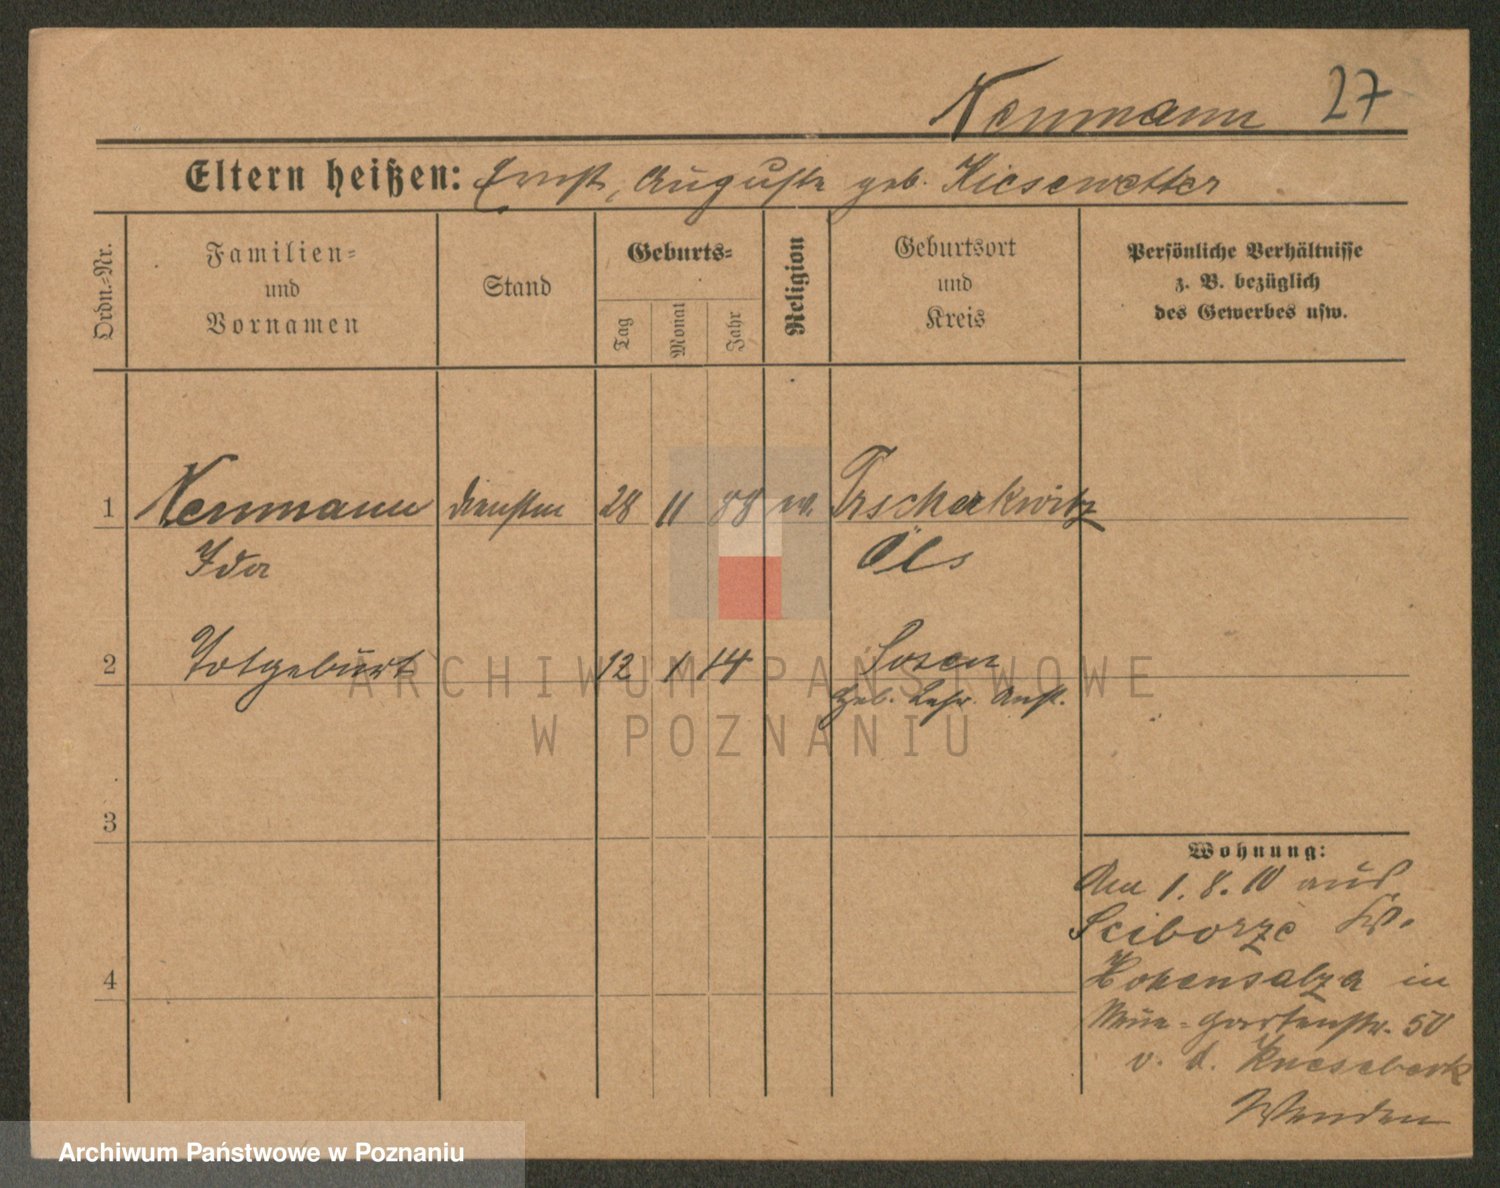 Neumann 27
Eltern heißen: Ernst, Auguste geb. Kiesewetter
Ordn.-Nr.
Familien-
und
Vornamen
Stand
Geburts-
Tag
Monat
Jahr
Religion
Geburtsort
und
Kreis
Persönliche Verhältnisse
z. B. bezüglich
des Gewerbes usw.
1 Neumann 28 11 88 ev. Tscherkwitz
Ida Öls
2 Totgeburt 12 1 14 Posen
Heb. Lehr. Anst.
3
Wohnung:
Am 1. 8. 10 aus
Sciborze Kr.
4 Hohensalza in
Neue-Gartenstr. 50
v. d. Knesebeck
ARCHIWUM PAŃSTWOWE
W POZNANIU
Archiwum Państwowe w Poznaniu